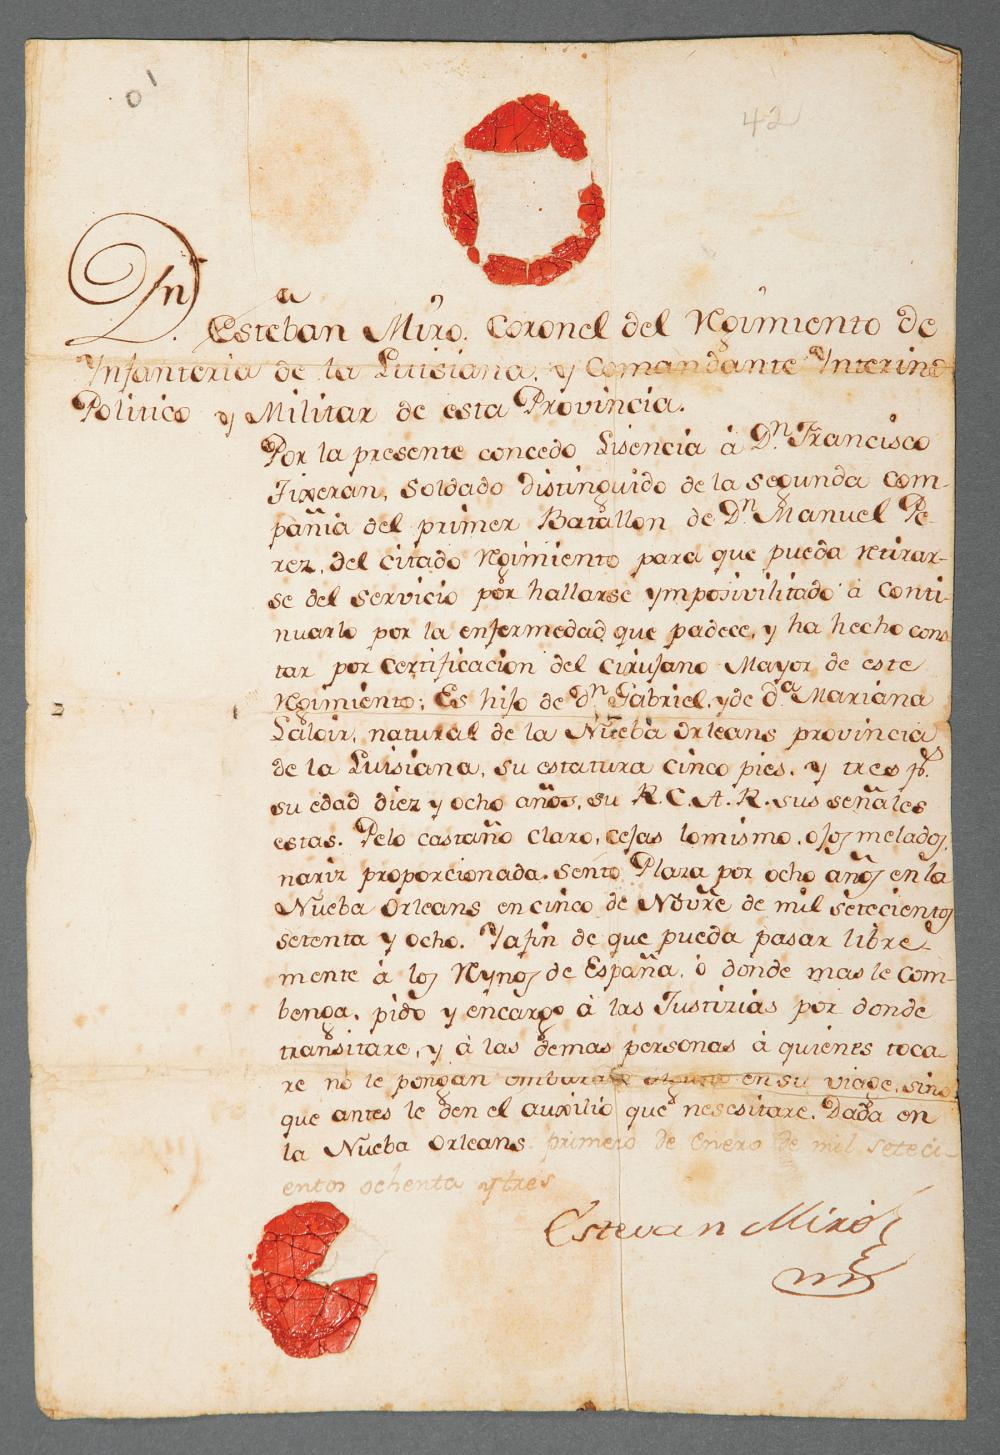 01
42
Dn. Esteban Miro. Coronel del Rgimiento de
Ynfanteria de la Luisiana, y Comandante Ynterino
Politico y Militar de esta Provincia.
Por la presente concedo Lisencia à Dn. Francisco
Fixeran, Soldado distinguido de la segunda Com-
pañia del primer Batallon de Dn. Manuel Pe-
rez, del citado Rgimiento para que pueda retirar-
se del servicio por hallarse ymposivilitado à Conti-
nuarlo por la enfermedad que padece, y ha hecho cons
tar por certificacion del cirujano Mayor de este
Rgimiento; Es hijo de Dn. Gabriel, y de da. Mariana
Laloir, natural de la Nueba Orleans provincia
de la Luisiana, su estatura cinco pies, y tres ps.
su edad diez y ocho años, su R.C.A.R. sus señales
estas. Pelo castaño claro, cejas lo mismo, ojos melados,
nariz proporcionada. Sentó Plaza por ocho años en la
Nueba Orleans en cinco de Novre de mil setecientos
setenta y ocho. Y a fin de que pueda pasar libre-
mente à los Rynos de España, ò donde mas le Com-
benga, pido y encargo à las Justizias por donde
transitare, y à las demas personas à quienes toca
re no le pongan embarazo alguno en su viage, sino
que antes le den el auxilio que nesesitare. Dada en
la Nueba Orleans primero de Enero de mil seteci-
entos ochenta y tres
Estevan Miró